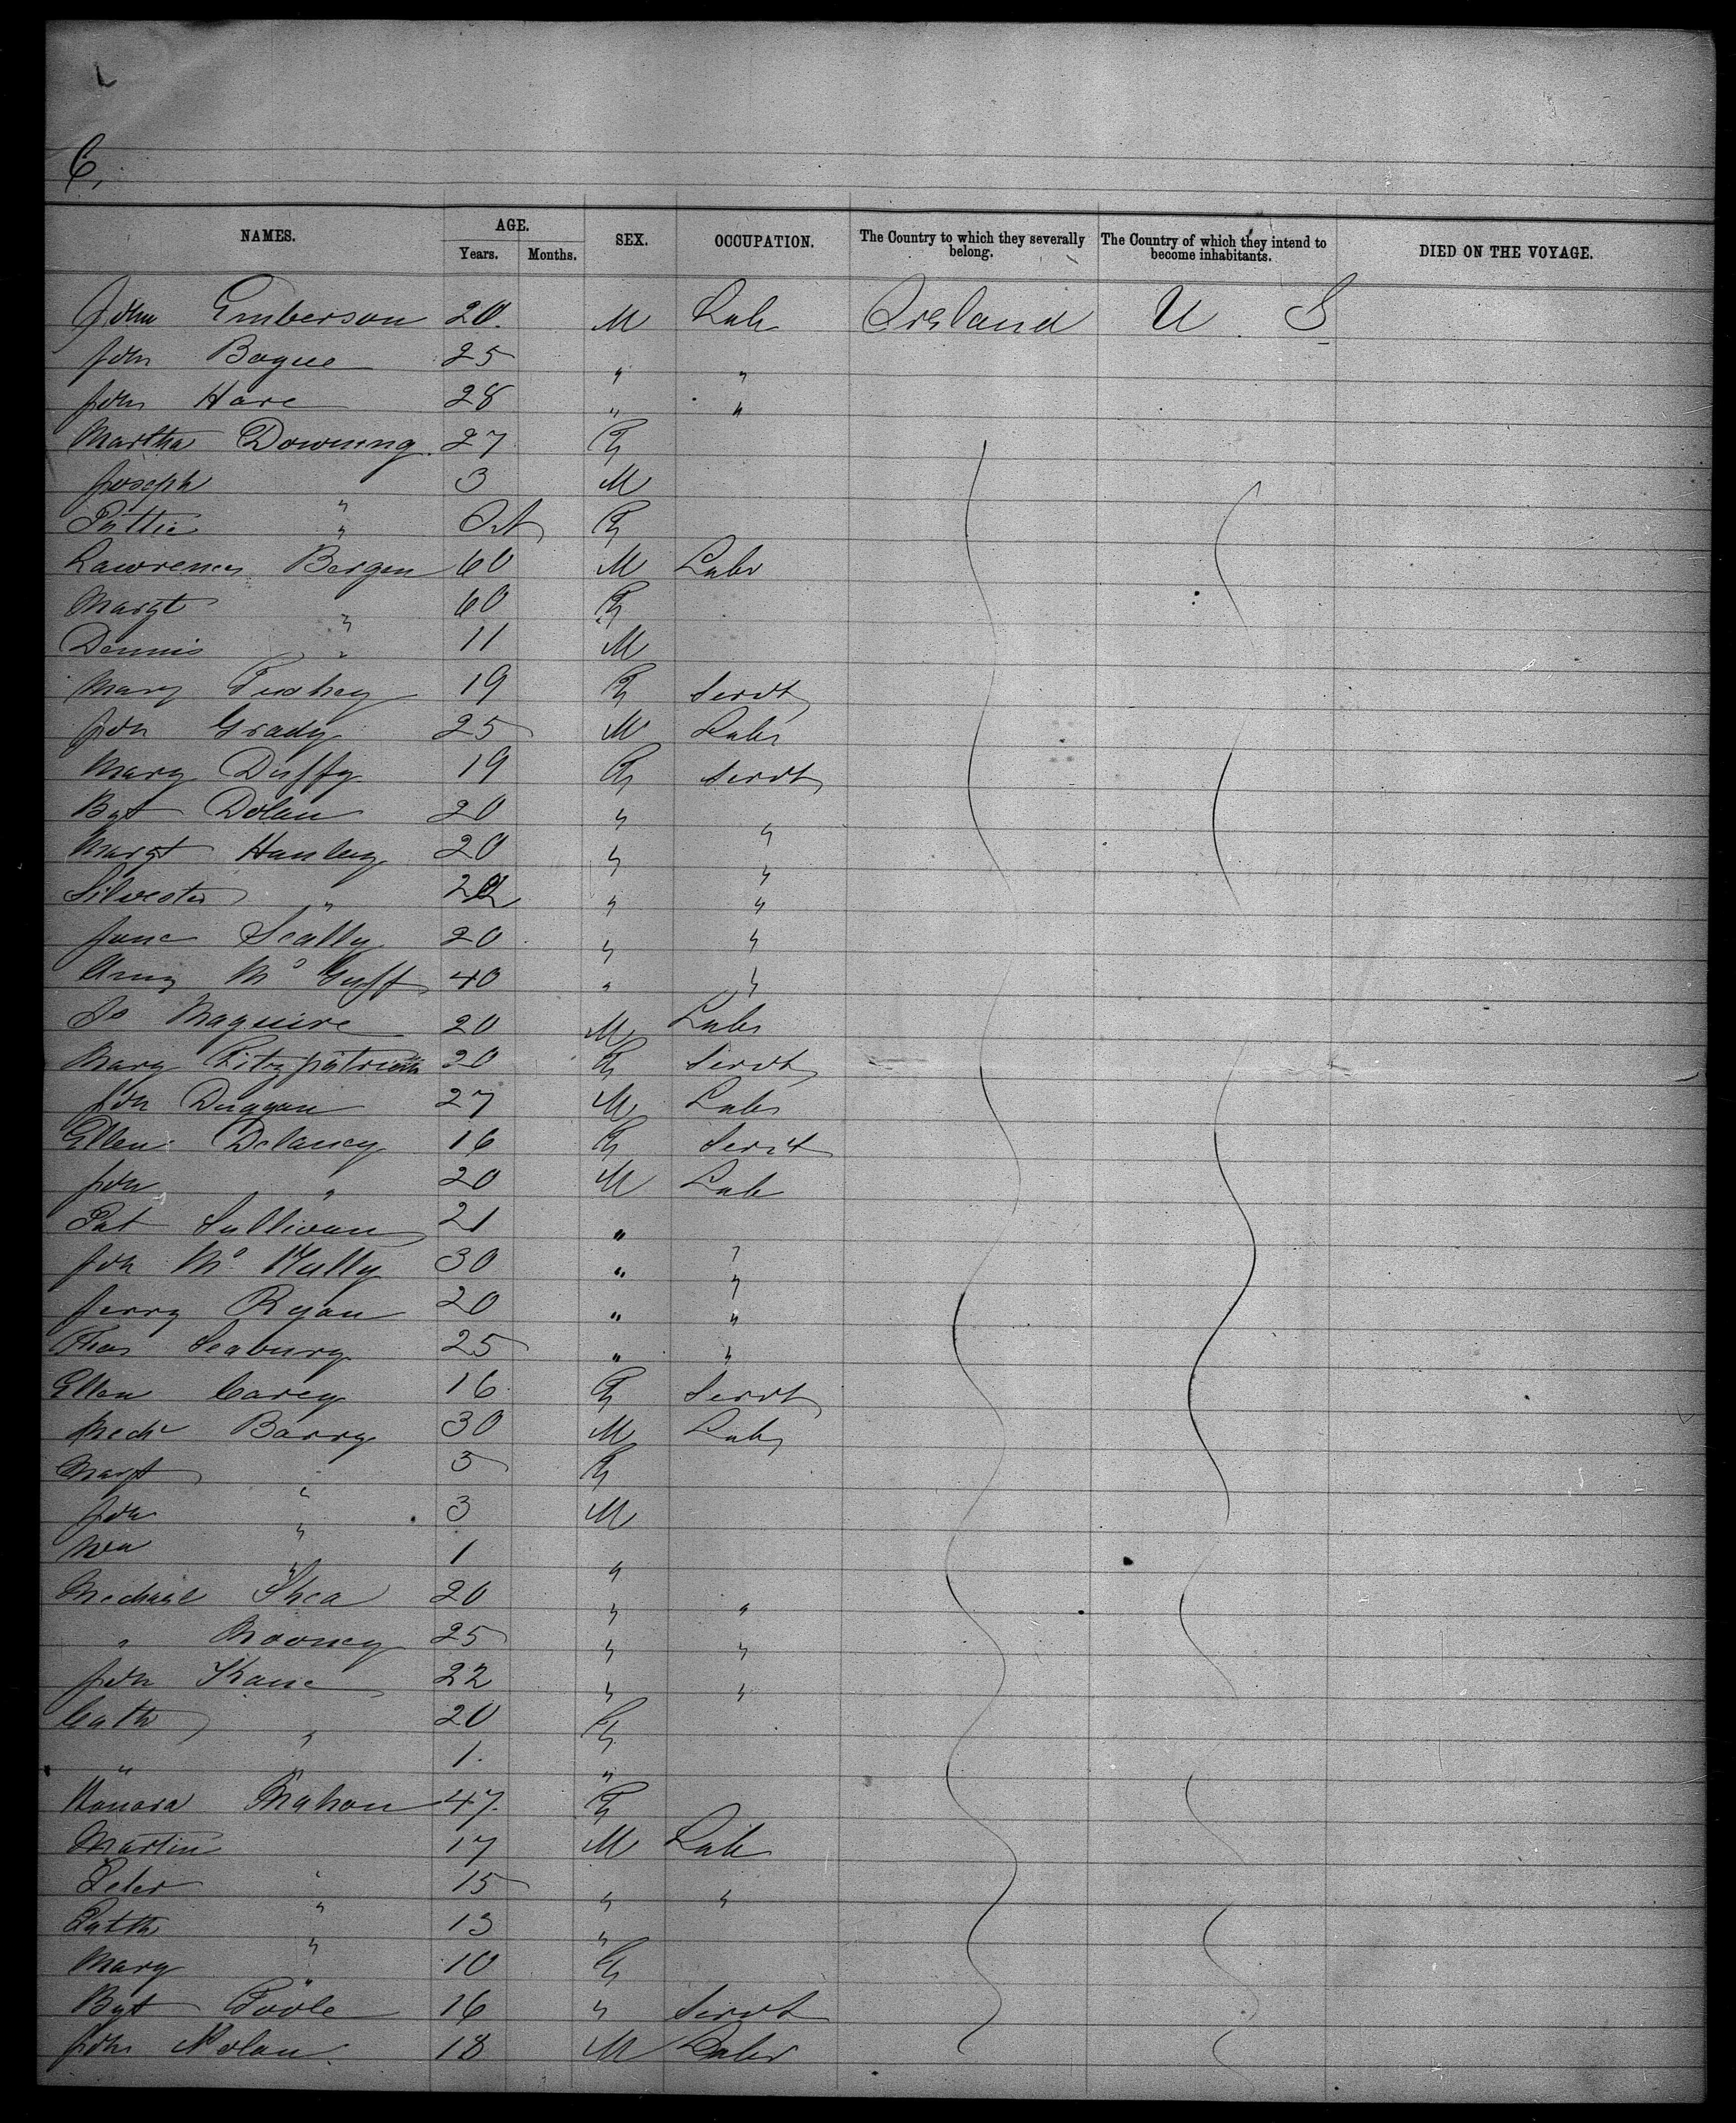 6,
NAMES. AGE. Years. Months. SEX. OCCUPATION. The Country to which they severally belong. The Country of which they intend to become inhabitants. DIED ON THE VOYAGE.
John Emberson 20. M Lab Ireland U S
Jon Bogue 25 " "
John Hare 28 " "
Martha Downing 27 F
Joseph " 3 M
" F
Lawrence Bergen 60 M Labr
Margt " 60 F
Dennis " 11 M
Mary 19 F Servt
Jon Grady 25 M Labr
Mary Duffy 19 F Servt
Bgt Dolan 20 " "
Margt Hanley 20 " "
Silvester " 22 " "
Jane Scally 20 " "
Amy 40 " "
Jo Maguire 20 M Labr
Mary Fitzpatrick 20 F Servt
Jon Duggan 27 M Labr
Ellen Delaney 16 F Servt
Jon " 20 M Lab
Pat Sullivan 21 " "
Jon 30 " "
Jerry Ryan 20 " "
Thos Seabury 25 " "
Ellen Carey 16 F Servt
Michl Barry 30 M Labr
Margt " 5 F
Jon " 3 M
Wm " 1 "
Michael Shea 20 " "
" Mooney 25 " "
Jon Kane 22 " "
Cath " 20 F
" " 1. "
Honora Mahon 47. F
Martin " 17 M Lab
Peter " 15 " "
" 13 "
Mary " 10 F
Bgt Toole 16 " Servt
John Nolan 18 M Labr